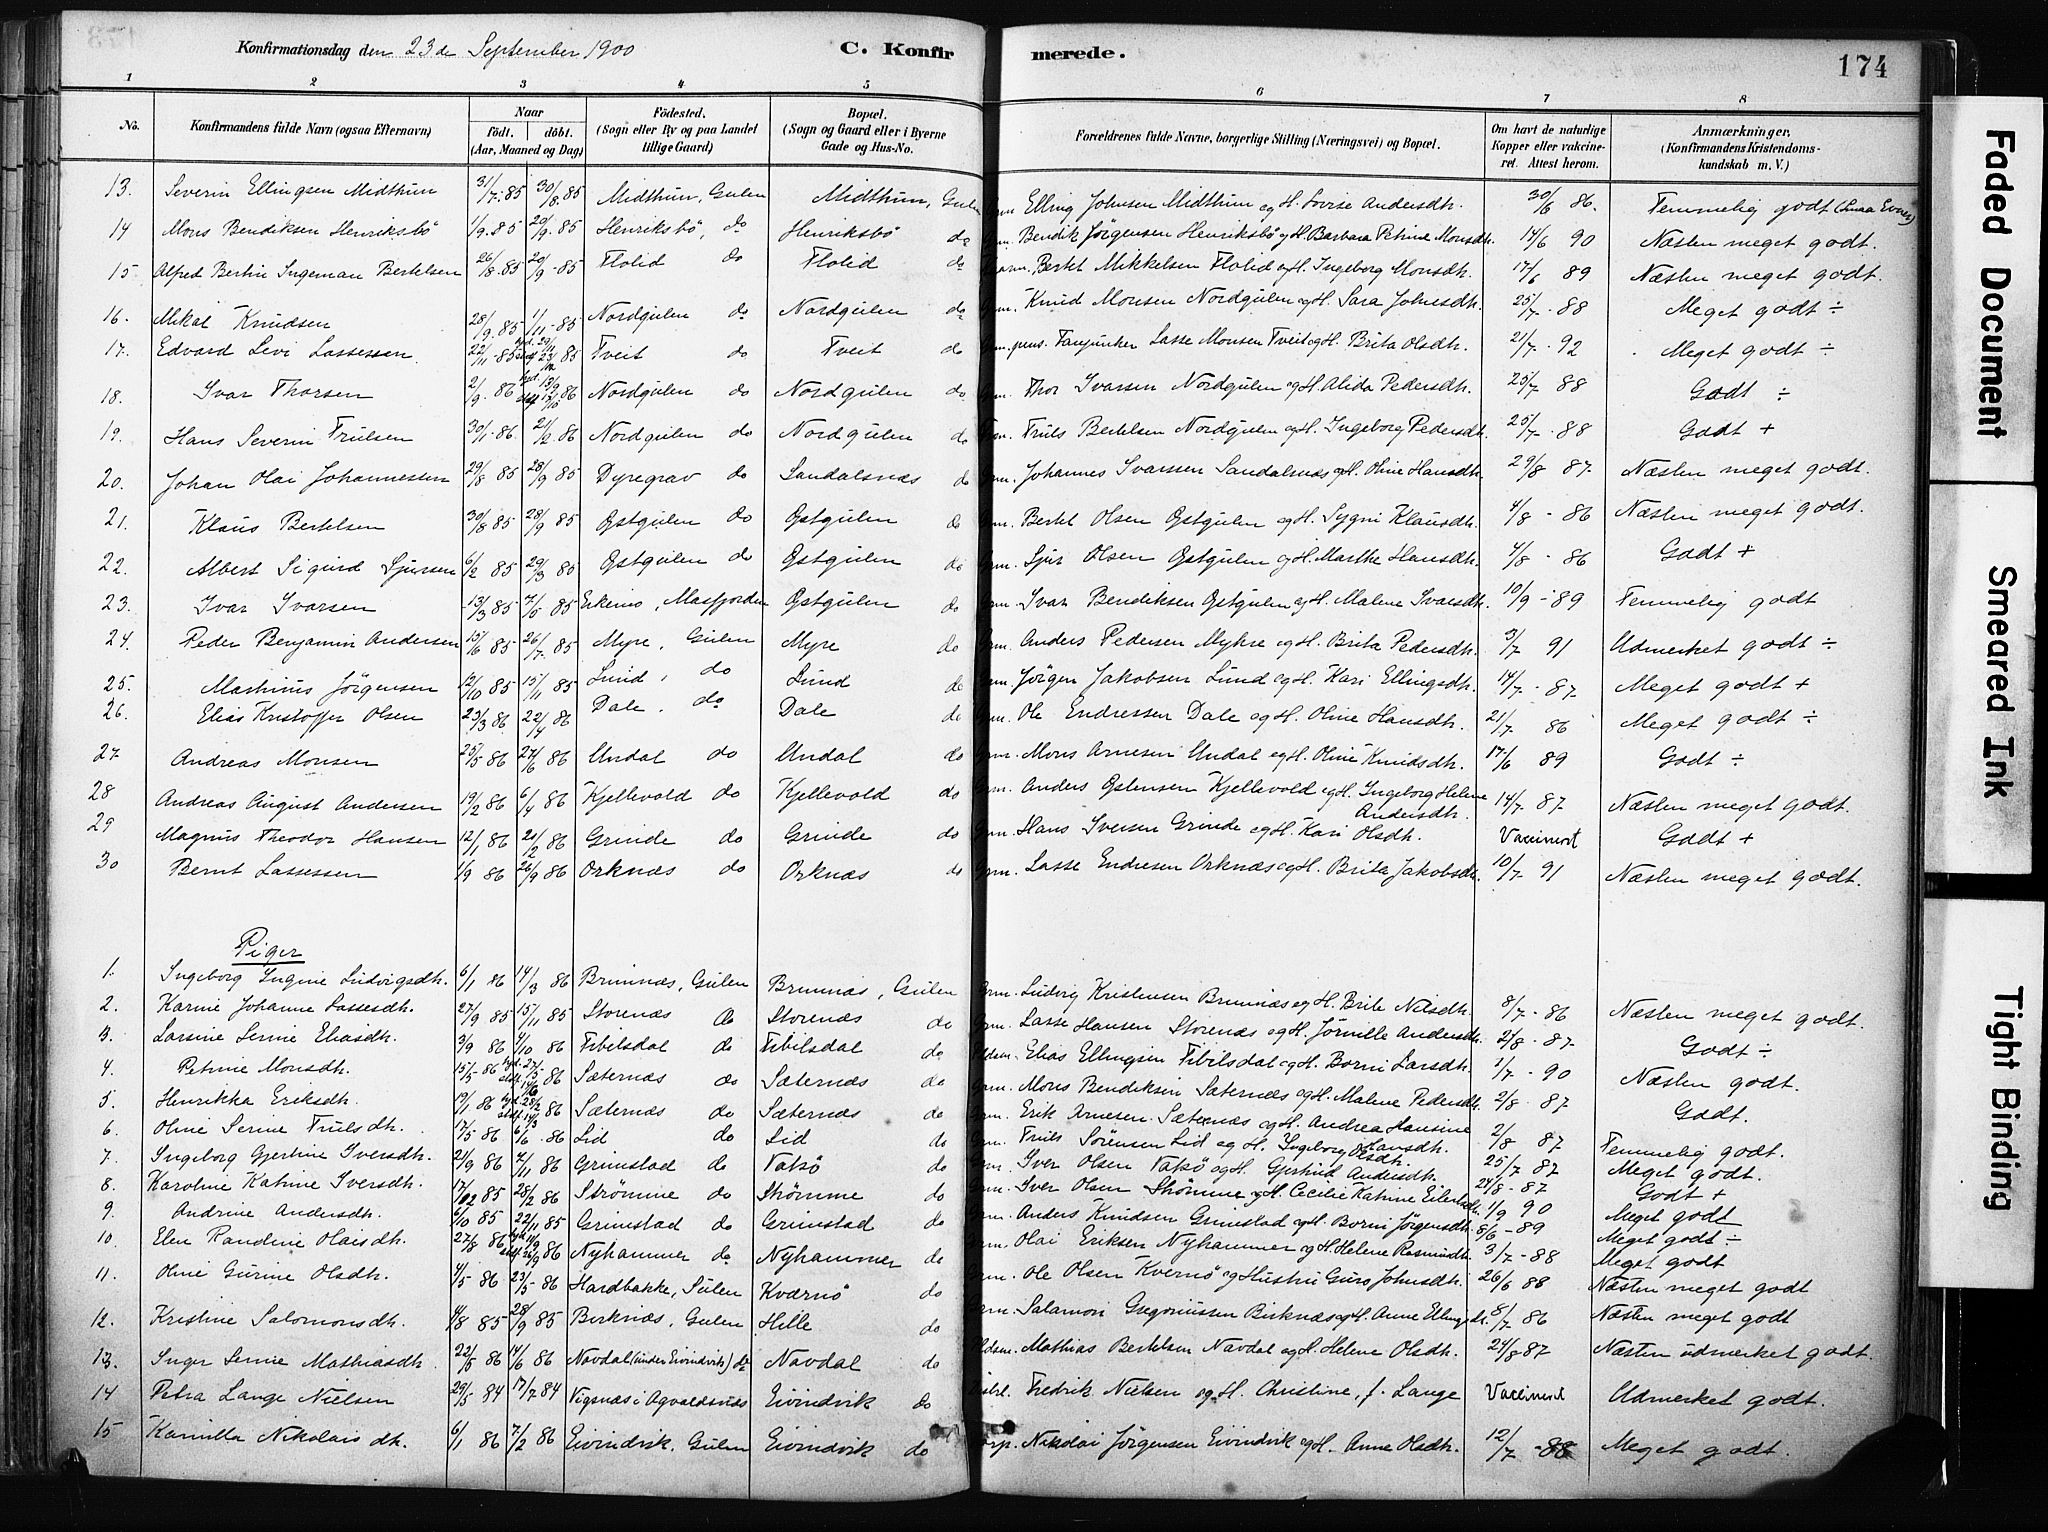 Konfirmationsdag den 23de September 1900 C. Konfir merede. 174
1 2 3 4 5 6 7 8
No. Konfirmandens fulde Navn (ogsaa Efternavn) Naar födt. döbt. (Aar, Maaned og Dag) Födested. (Sogn eller By og paa Landet tillige Gaard) Bopæl. (Sogn og Gaard eller i Byerne Gade og Hus-No. Forældrenes fulde Navne, borgerlige Stilling (Næringsvei) og Bopæl. Om havt de naturlige Kopper eller vakcineret. Attest herom. Anmærkninger. (Konfirmandens Kristendomskundskab m. V.)
13. Severin Ellingsen Midthun 31/7. 85 30/8. 85 Midthun, Gulen Midthun, Gulen Grm. Elling Johnsen Midthun og H. Lovise Andersdh. 30/6 86. Temmelig godt (Smaa Evner)
14 Mons Bendiksen Henriksbö 1/9. 85 20/9. 85 Henriksbö, do Henriksbö do Grm. Bendik Jørgensen Henriksbö og H. Barbara Petrine Monsdh. 14/6 90 Næsten meget godt.
15. Alfred Bertin Ingeman Bertelsen 26/8. 85 20/9 - 85 Flolid do Flolid do Bertel Mikkelsen Flolid og H. Ingeborg Monsdh. 17/6 89 Næsten meget godt.
16. Mikal Knudsen 28/9. 85 1/11 - 85 Nordgulen do Nordgulen do Grm. Knud Monsen Nordgulen og H. Sara Johnsdh. 25/7 - 88 Meget godt ÷
17. Edvard Levi Lassessen 22/11 - 85 85 Tveit do Tveit do Grm. pens. Fanejunker Lasse Monsen Tveit og H. Brita Olsdh. 21/7 - 92 Meget godt ÷
18. Ivar Thorsen 2/9. 86 86 Nordgulen do Nordgulen do Grm. Thor Ivarsen Nordgulen og H. Alida Pedersdh. 25/7 - 88 Godt ÷
19. Hans Severin Trulsen 30/1 - 86. 21/2 86 Nordgulen do Nordgulen do Grm. Truls Bertelsen Nordgulen og H. Ingeborg Pedersdh. 25/7 - 88 Godt +
20. Johan Olai Johannessen 29/8 85 28/9 85 Dyregrav do Sandalsnæs do Grm. Johannes Ivarssen Sandalsnæs og H. Oline Hansdh. 29/8 87. Næsten meget godt.
21. Klaus Bertelsen 30/8 85 28/9 85 Østgulen do Østgulen do Grm. Bertel Olsen Østgulen og H. Sygni Klausdh. 4/8 - 86 Næsten meget godt.
22. Albert Sigurd Sjursen 6/2 85 29/3 80 Østgulen do Østgulen do Grm. Sjur Olsen Østgulen og H. Marthe Hansdh. 4/8 - 86 Godt +
23. Ivar Ivarsen 13/3 85 7/5 85 Erkenes, Masfjorden Østgulen do Grm. Ivar Bendiksen Østgulen og H. Malene Ivarsdh. 10/9 - 89 Temmelig godt
24. Peder Benjamin Andersen 15/6 85 26/7. 85 Myre, Gulen Myre do Grm. Anders Pedersen Myhre og H. Brita Pedersdh. 3/7 91 Udmerket godt ÷
25. Martinus Jörgensen 12/10 85 15/11 85 Lund, do Lund do Grm. Jörgen Jakobsen Lund og H. Kari Ellingsdh. 14/7. 87. Meget godt +
26. Elias Kristoffer Olsen 23/3 86 22/4 86 Dale, do Dale do Grm. Ole Endressen Dale og H. Oline Hansdh. 21/7 86 Meget godt ÷
27 Andreas Monsen 25/5 86 27/6 86 Undal do Undal do Grm. Mons Arnesen Undal og H. Oline Knudsdh. 17/6 89 Godt ÷
28 Andreas August Andersen 19/2 86 6/4 86 Kjellevold do Kjellevold do Grm. Anders Østensen Kjellevold og H. Ingeborg Helene Andersdh. 14/7. 87 Næsten meget godt.
29 Magnus Theodor Hansen 12/1 86 21/2 86 Grinde do Grinde do Grm. Hans Iversen Grinde og H. Kari Olsdh. Vaccineret Godt +
30 Bernt Lassessen 1/9 86 26/9 86 Orknæs do Orknæs do Grm. Lasse Endresen Orknæs og H. Brita Jakobsdh. 10/7. 91 Næsten meget godt.
Piger
1. Ingeborg Ingine Ludvigsdh. 6/1 86 14/3 86 Brunnæs, Gulen Brunnæs, Gulen Grm. Ludvig Kristensen Brunnæs og H. Brite Nilsdh. 8/7 - 86 Næsten meget godt.
2. Karine Johanne Lassesdh. 27/9 85 15/11 85 Storenæs do Storenæs do Grm. Lasse Hansen Storenæs og H. Jörnille Andersdh. 2/8 - 87. Godt ÷
3. Larsine Serine Eliasdh. 3/9 86 4/10 86 Tibilsdal do Tibilsdal do Elias Ellingsen Tibilsdal og H. Borni Larsdh. 1/7 - 90 Næsten godt.
4. Petrine Monsdh. 15/5 86 86 Sæternæs do Sæternæs do Grm. Mons Bendiksen Sæternæs og H. Malene Pedersdh. 2/8 - 87 Godt.
5. Henrikka Eriksdh. 19/1 86 86 Sæternæs do Sæternæs do Grm. Erik Arnesen Sæternæs og H. Andrea Hansine Hansdh. 2/8 87 Temmelig godt.
6. Oline Serine Trulsdh. 17/5 86 6/6. 86 Lid do Lid do Grm. Truls Sörensen Lid og H. Ingeborg Olsdh. 25/7 87 Meget godt.
7. Ingeborg Gjertine Iversdh. 21/9 86 7/11 86 Grimstad do Vatsö do Grm. Iver Olsen Vatsö og H. Gjertrud Andersdh. 24/8 - 87 Godt +
8. Karoline Katrine Iversdh. 17/12 85 28/2 86 Strömme do Strömme do Grm. Iver Olsen Strömme og H. Cecilie Katrine Eilertsdh. 1/9 90 Meget godt
9. Andrine Andersdh. 6/10 85 22/11 85 Grimstad do Grimstad do Grm. Anders Knudsen Grimstad og H. Borni Jörgensdh. 8/6 - 89 Meget godt ÷
10. Elen Randine Olaisdh. 27/8 86 86 Nyhammer do Nyhammer do Grm. Olai Eriksen Nyhammer og H. Helene Rasmusdh. 3/7 - 88 Meget godt
11. Oline Gurine Olsdh. 4/5 86 23/5 - 86 Hardbakke, Sulen Kværnö do Grm. Ole Olsen Kvernö og Hustru Guro Johnsdh. 26/6 88 Næsten meget godt
12. Kristine Salomonsdh. 4/8 85 28/9 85 Birknæs, Gulen Hille do Grm. Salamon Gregoriussen Birknæs og H. Anne Ellingsdh. 8/7 86 Næsten meget godt
13. Inger Serine Mathiasdh. 22/5 86 14/6 86 Navdal (under Eivindvik) do Navdal do Mathias Bertelsen Navdal og H. Helene Olsdh. 24/8 87 Næsten udmerket godt.
14 Petra Lange Nielsen 29/5 84 17/7 84 Vigsnæs i Agvaldsnæs Eivindvik do Fredrik Nielsen og H. Christine, f. Lange Vaccineret Udmerket godt.
15 Kamilla Nikolaisdh. 6/1 86 7/2 86 Eivindvik, Gulen Eivindvik do Nikolai Jörgensen Eivindvik og H. Anne Olsdh. 12/7 - 88 Meget godt.
Faded Document
Smeared Ink
Tight Binding